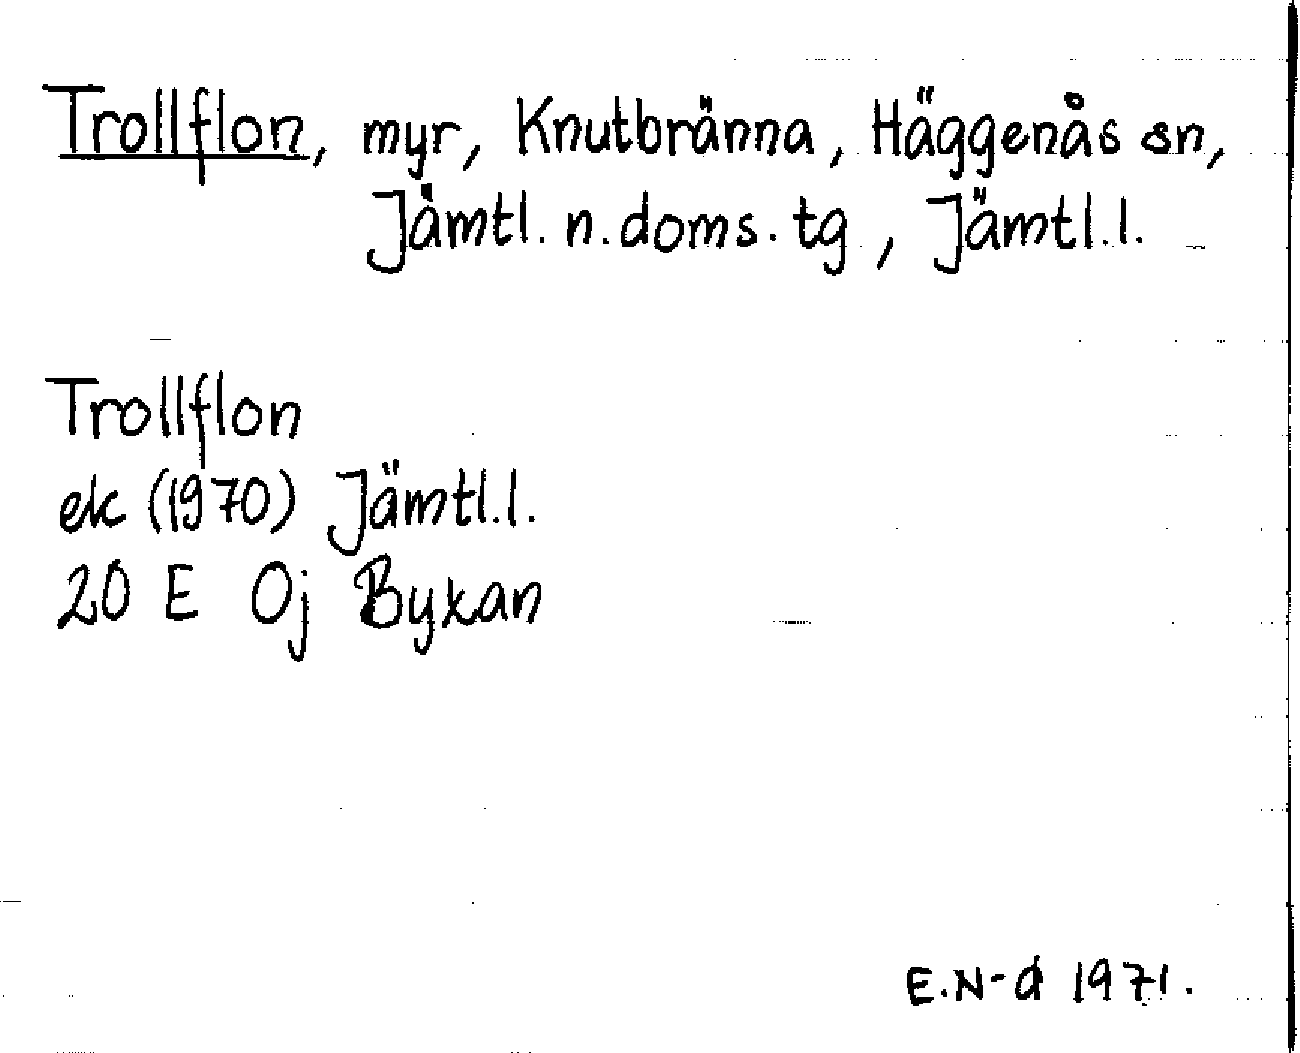 Trollflon, myr, Knutbränna, Häggenås sn,
Jämtl. n. doms. tg, Jämtl. l.
Trollflon
ek (1970) Jämtl. l.
20 E Oj Byxan
E. N-d 1971.